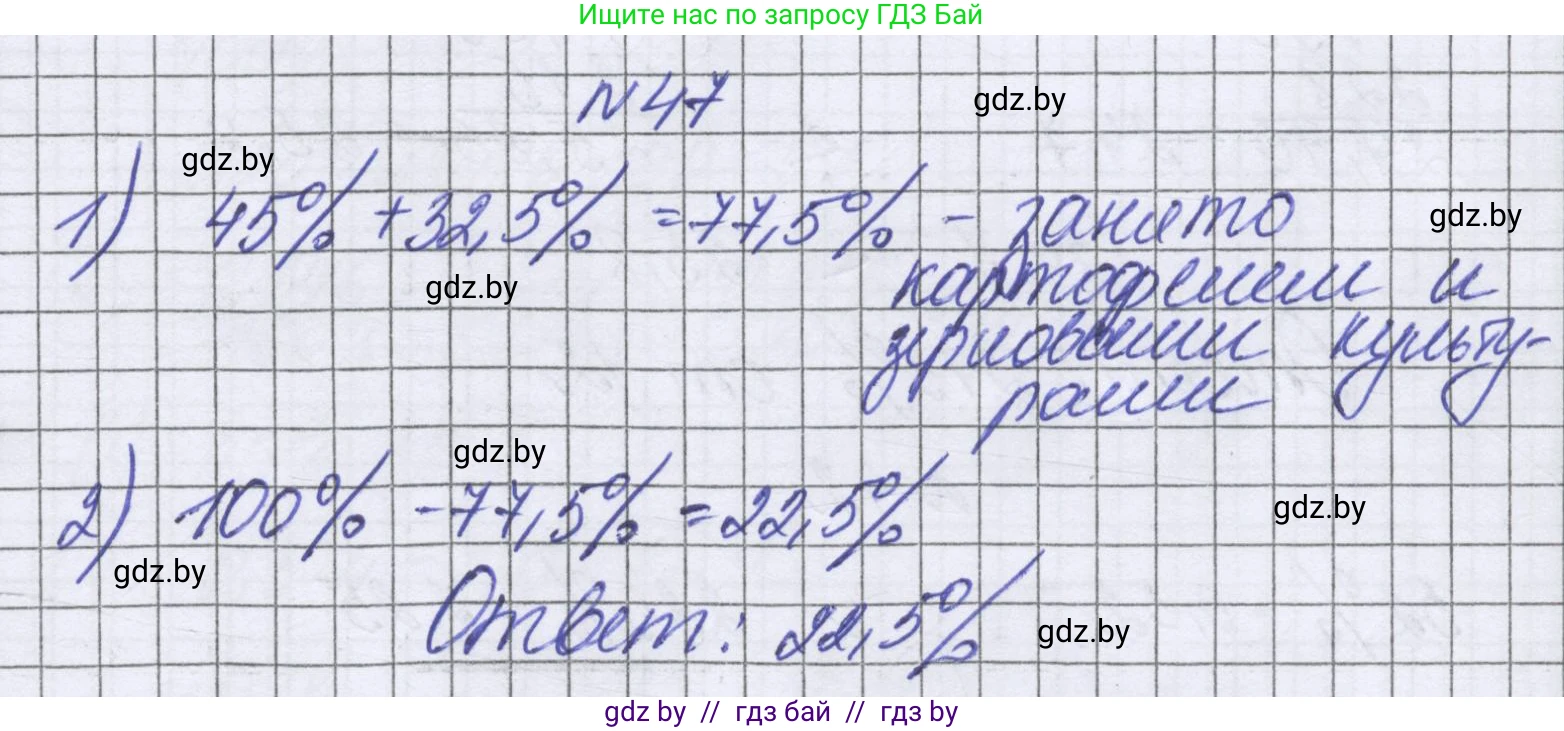 Ищите нас по запросу ГДЗ Бай
N 47
gdz.by
gdz.by
1) 45% + 32,5% = 77,5% - занято
gdz.by
картофелем и
gdz.by
зерновыми культу-
рами
gdz.by
2) 100% - 77,5% = 22,5%
gdz.by
gdz.by
Ответ: 22,5%
gdz.by
gdz by // гдз бай // гдз by